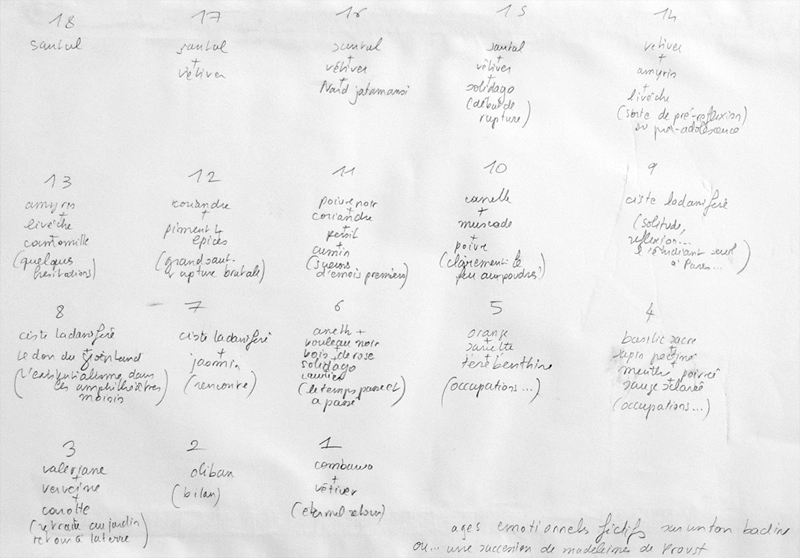 18
santal
17
santal
+
vétiver
16
santal
+
vétiver
+
Nard jatamansi
15
santal
+
vétiver
+
solidago
(début de
rupture)
14
vétiver
+
amyris
+
livèche
(sorte de pré-réflexion)
ou pré-adolescence
13
amyris
+
livèche
+
camomille
(quelques
hésitations)
12
coriandre
+
piment 4
épices
(grand saut
rupture brutale)
11
poivre noir
+
coriandre
+
persil
+
cumin
(sueurs
d'émois premiers)
10
canelle
+
muscade
+
poivre
(clairement: le
feu aux poudres!)
9
ciste ladanifère
(solitude,
réflexion...
l'étudiant seul
à Paris...)
8
ciste ladanifère
+
Lédon du Groënland
(l'existentialisme dans
les amphithéâtres
moisis)
7
ciste ladanifère
+
jasmin
(rencontre)
6
aneth +
bouleau noir
bois de rose
solidago
laurier
(le temps passe et
a passé)
5
orange
+
sariette
+
térébenthine
(occupations...)
4
basilic sacré
+
sapin pectiné
menthe poivrée
sauge sclarée
(occupations...)
3
valériane
+
verveine
+
carotte
(retraite au jardin
retour à la terre)
2
oliban
(bilan)
1
combawa
+
vétiver
(éternel retour)
ages émotionnels fictifs sur un ton badin
ou... une succession de madeleines de Proust